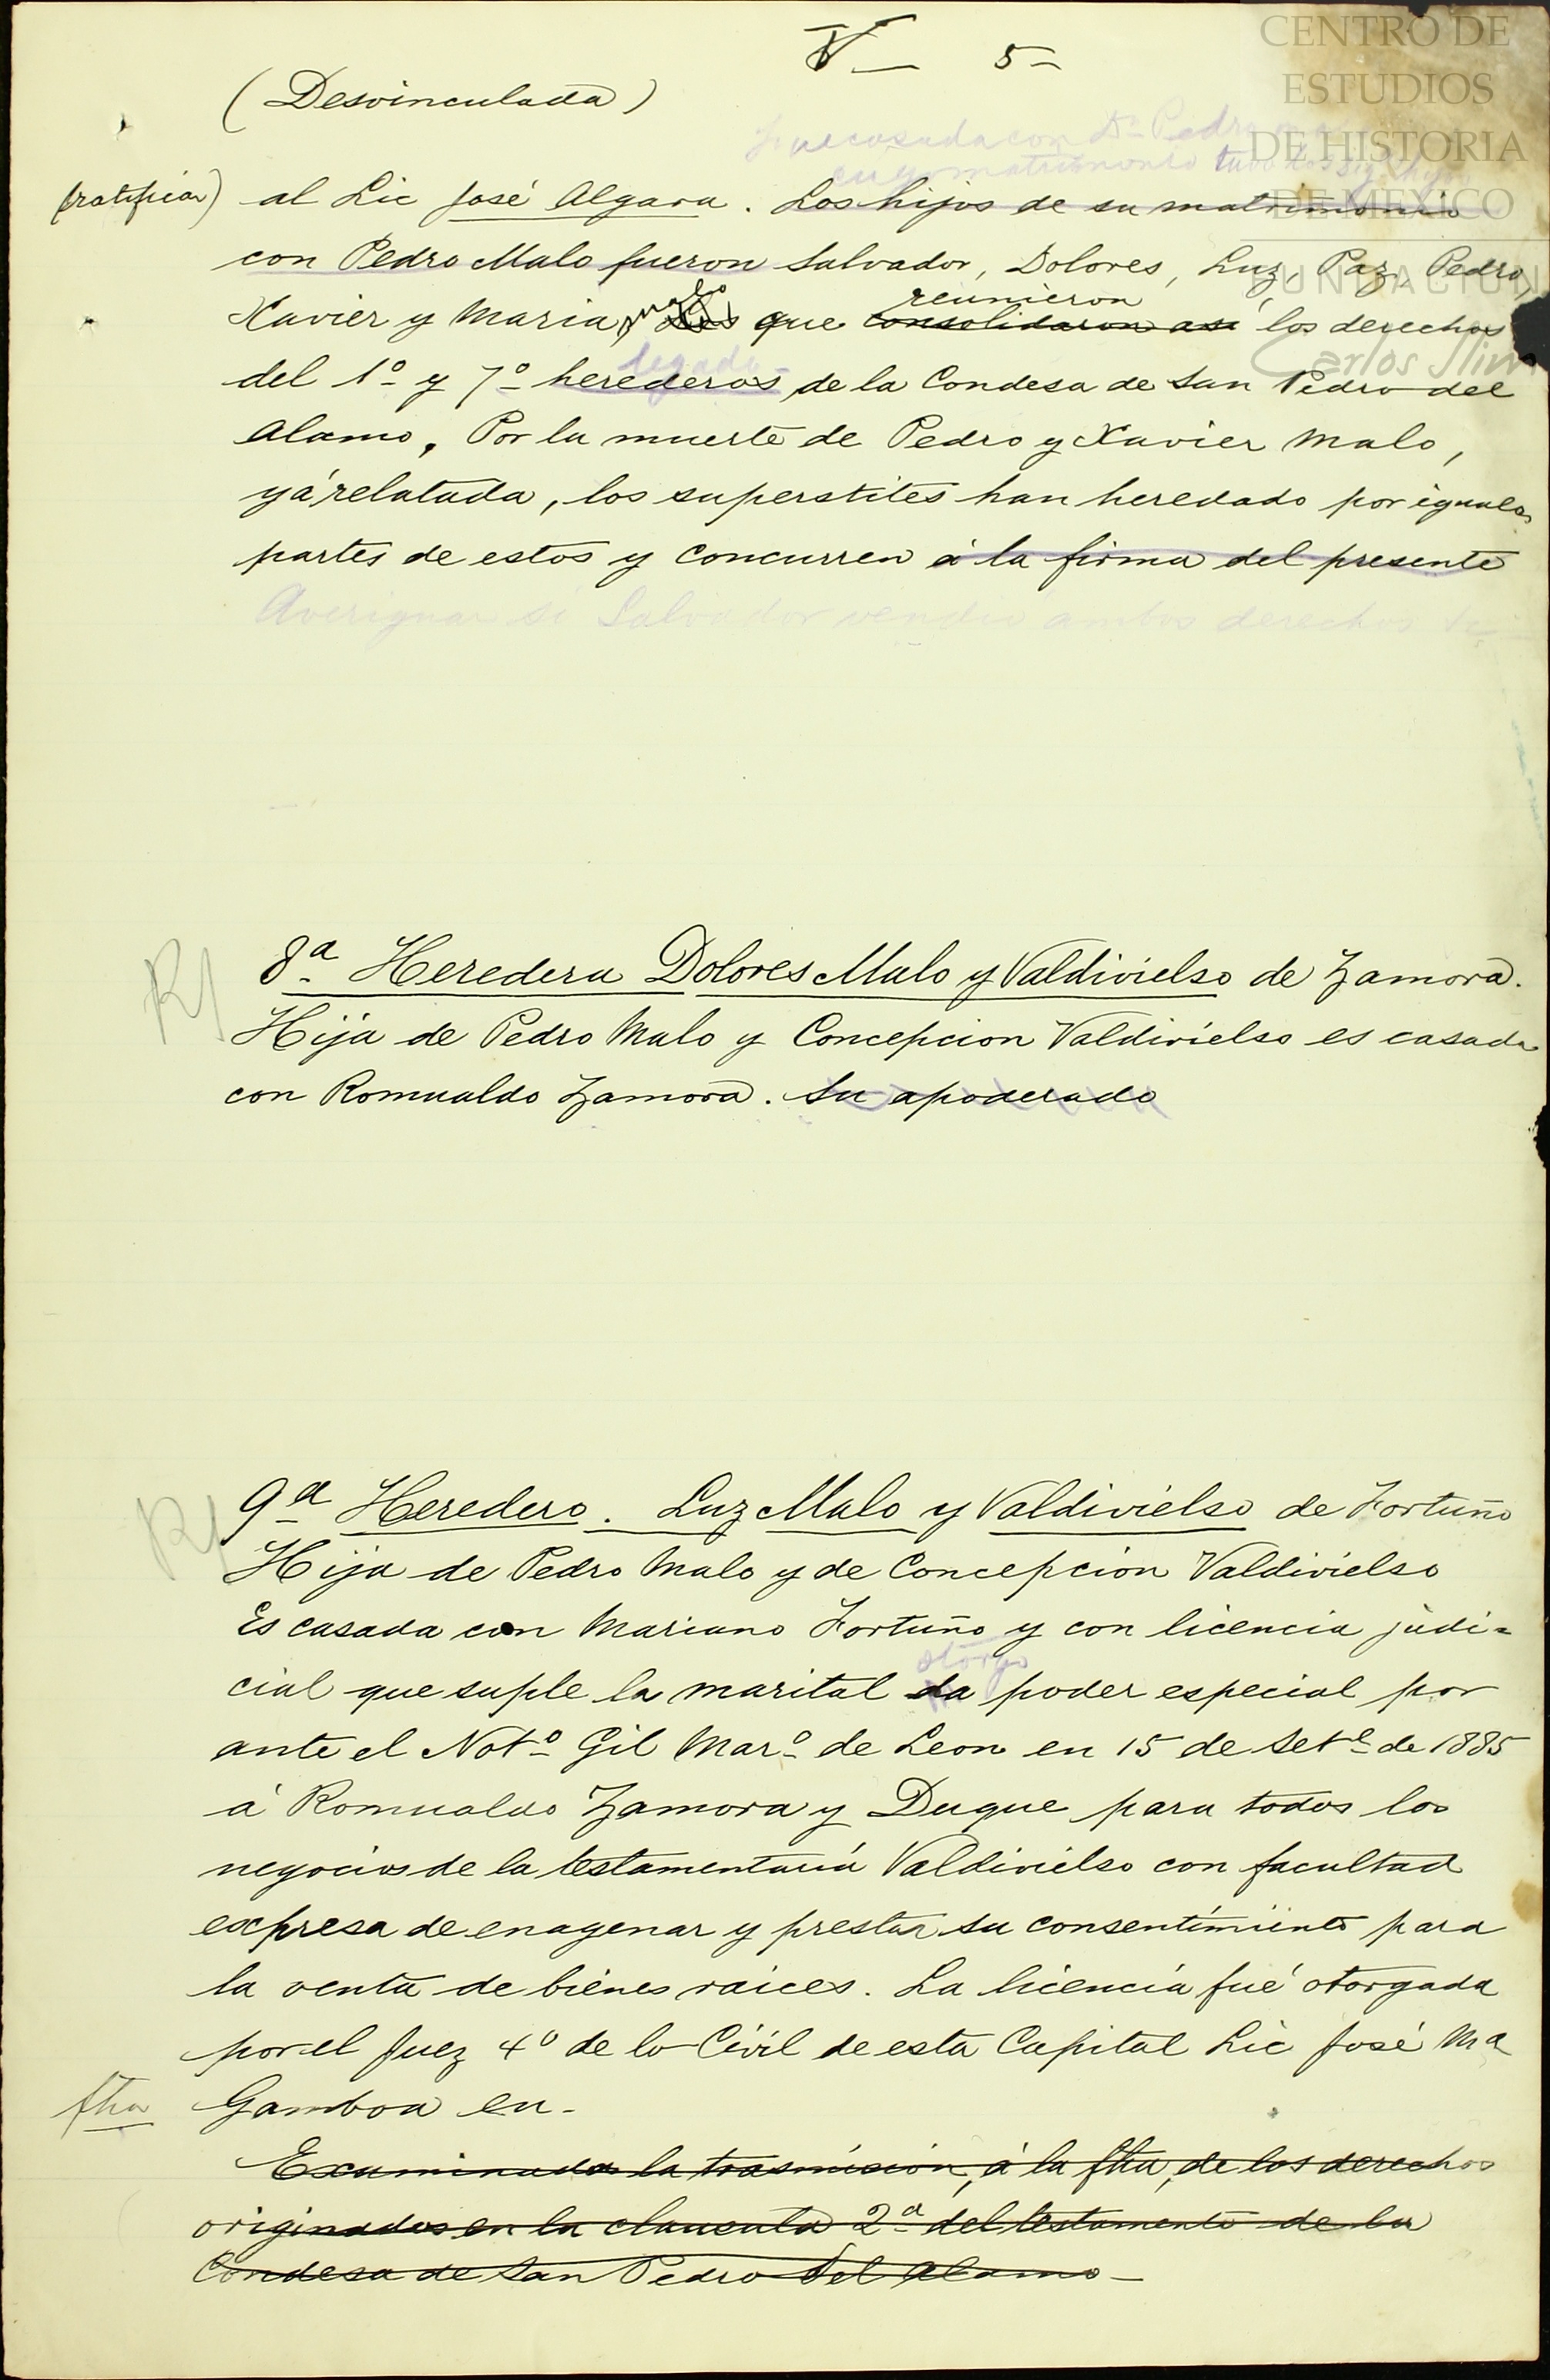 V— 5–
(Desvinculada)
Fue casada con Dn Pedro
cuyo matrimonio tubo
(ratificar) al Lic José Algara. Los hijos de su matrimonio
con Pedro Malo fueron Salvador, Dolores, Luz, Paz, Pedro,
reunieron
Xavier y Maria, Malo los que consolidaron asi los derechos
legado
del 1º y 7º herederos de la Condesa de San Pedro del
Alamo. Por la muerte de Pedro y Xavier Malo,
yá relatada, los superstites han heredado por iguales
partes de estos y concurren á la firma del presente
Averiguar si Salvador vendio ambos derechos
8ª Heredera Dolores Malo y Valdivielso de Zamora.
Hija de Pedro Malo y Concepcion Valdivielso es casada
con Romualdo Zamora. Su apoderado
9ª Heredero. Luz Malo y Valdivielso de Fortuño
Hija de Pedro Malo y de Concepcion Valdivielso
Es casada con Mariano Fortuño y con licencia judi=
otorgo
cial que suple la marital da poder especial por
ante el Notº Gil Marº de Leon en 15 de Setᵉ de 1885
á Romualdo Zamora y Duque para todos los
negocios de la testamentaría Valdivielso con facultad
expresa de enagenar y prestar su consentimiento para
la venta de bienes raices. La licencia fué otorgada
por el Juez 4º de lo Civil de esta Capital Lic José Mª
fha Gamboa en–
Examinada la trasmision, á la fha, de los derechos
originados en la clausula 2ª del testamento de la
Condesa de San Pedro del Alamo–
CENTRO DE
ESTUDIOS
DE HISTORIA
DE MEXICO
FUNDACION
Carlos Slim